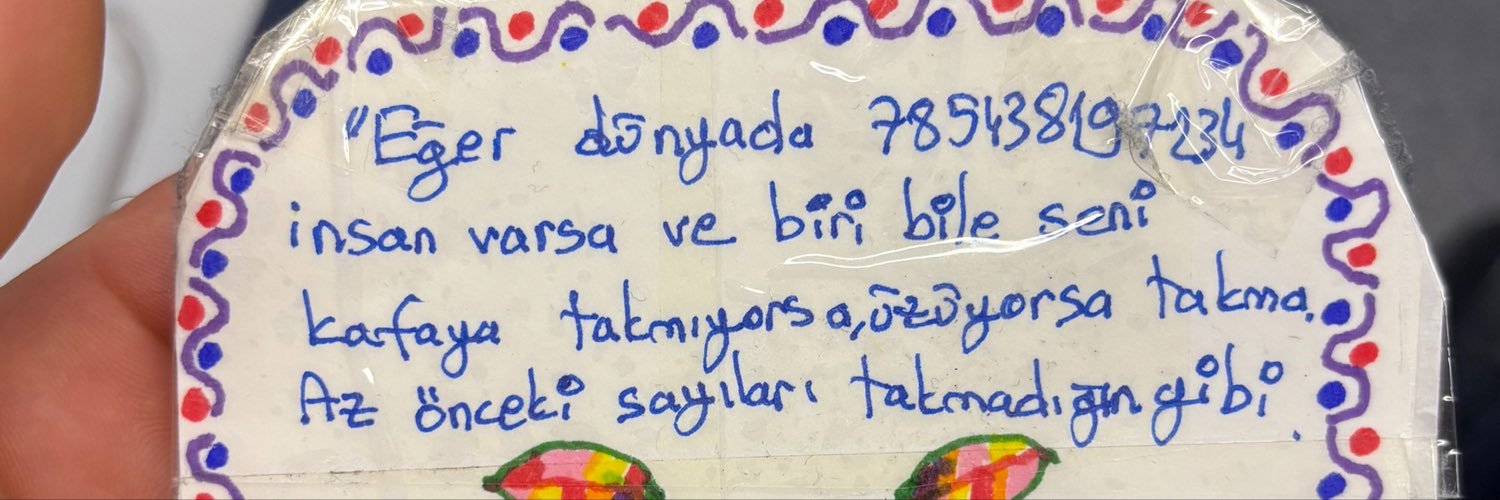 "Eğer dünyada 785438197234
insan varsa ve biri bile seni
kafaya takmıyorsa, üzüyorsa takma.
Az önceki sayıları takmadığın gibi.